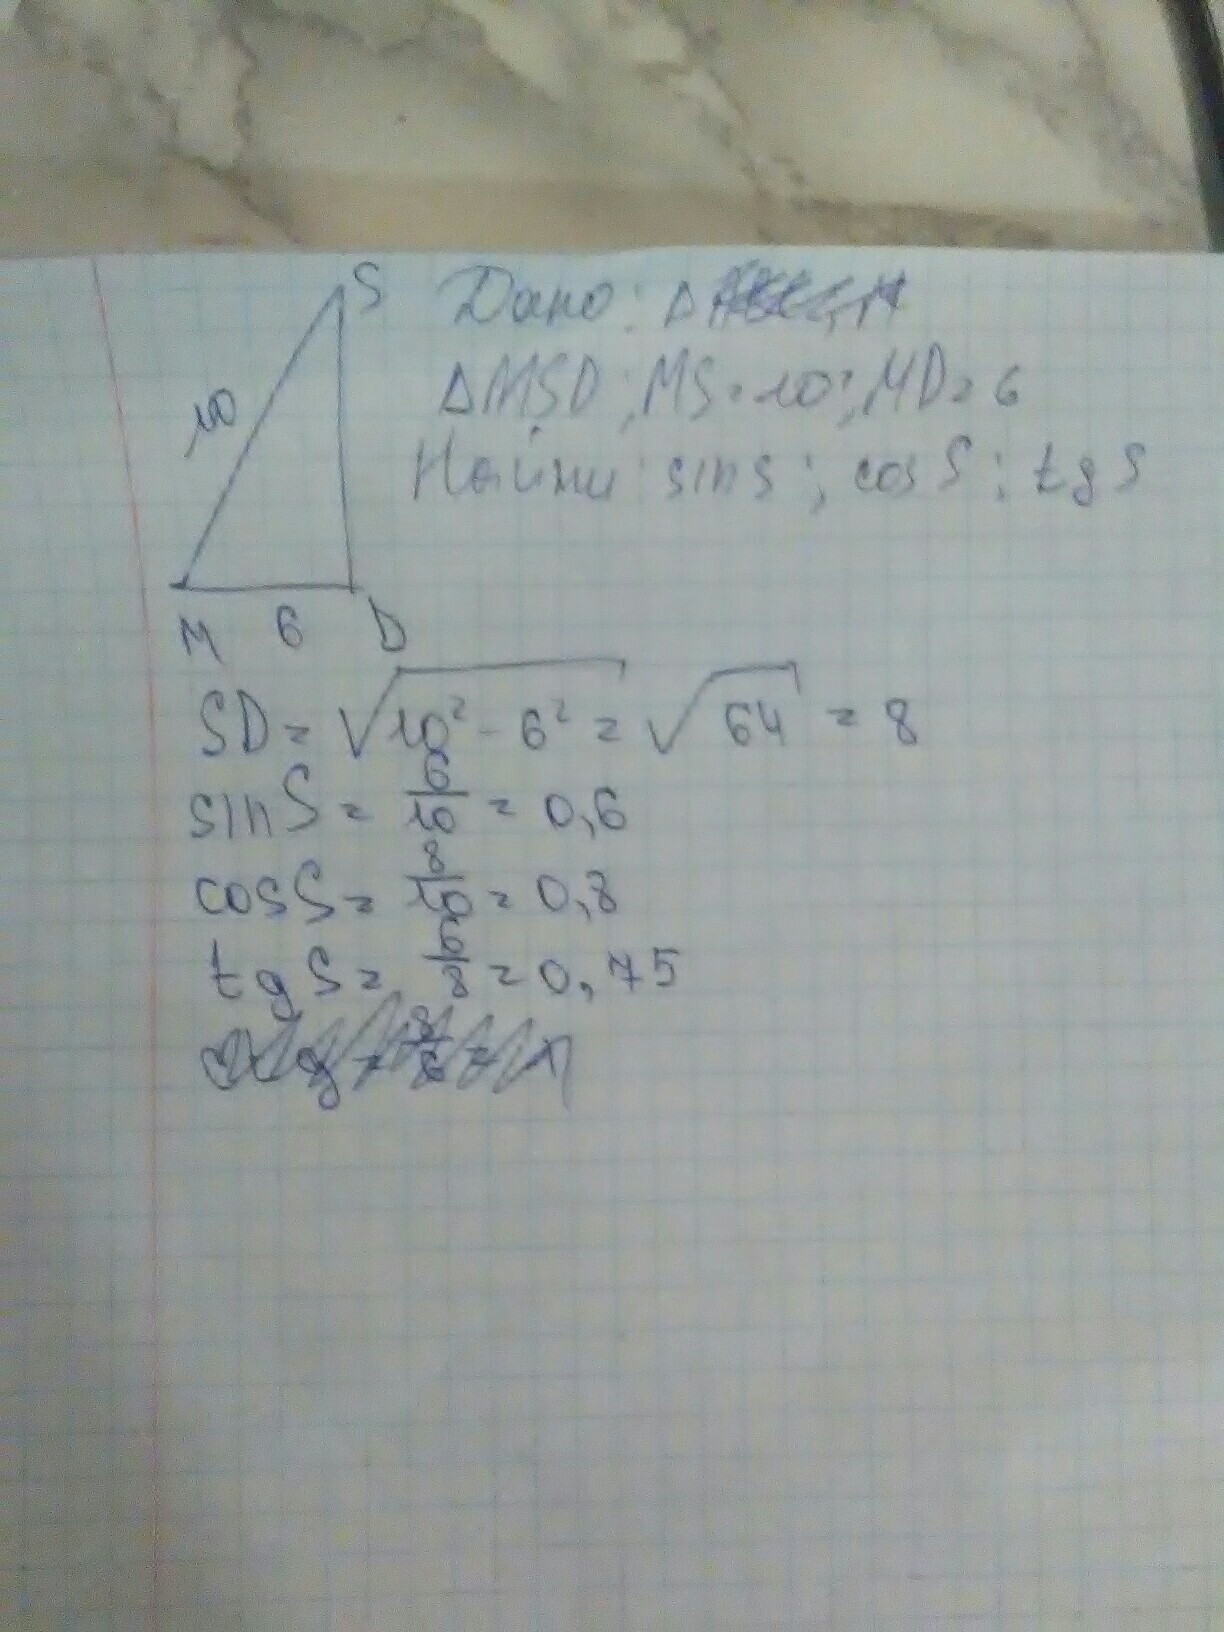 S
Дано: Δ
10
ΔMSD; MS = 10; MD = 6
Найти: sin S; cos S; tg S
M 6 D
SD = √10² - 6² = √64 = 8
sin S = 6/10 = 0,6
cos S = 8/10 = 0,8
tg S = 6/8 = 0,75